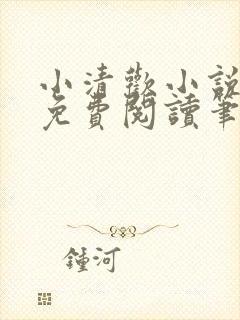 小清歡小說
免費閱讀筆
鍾河